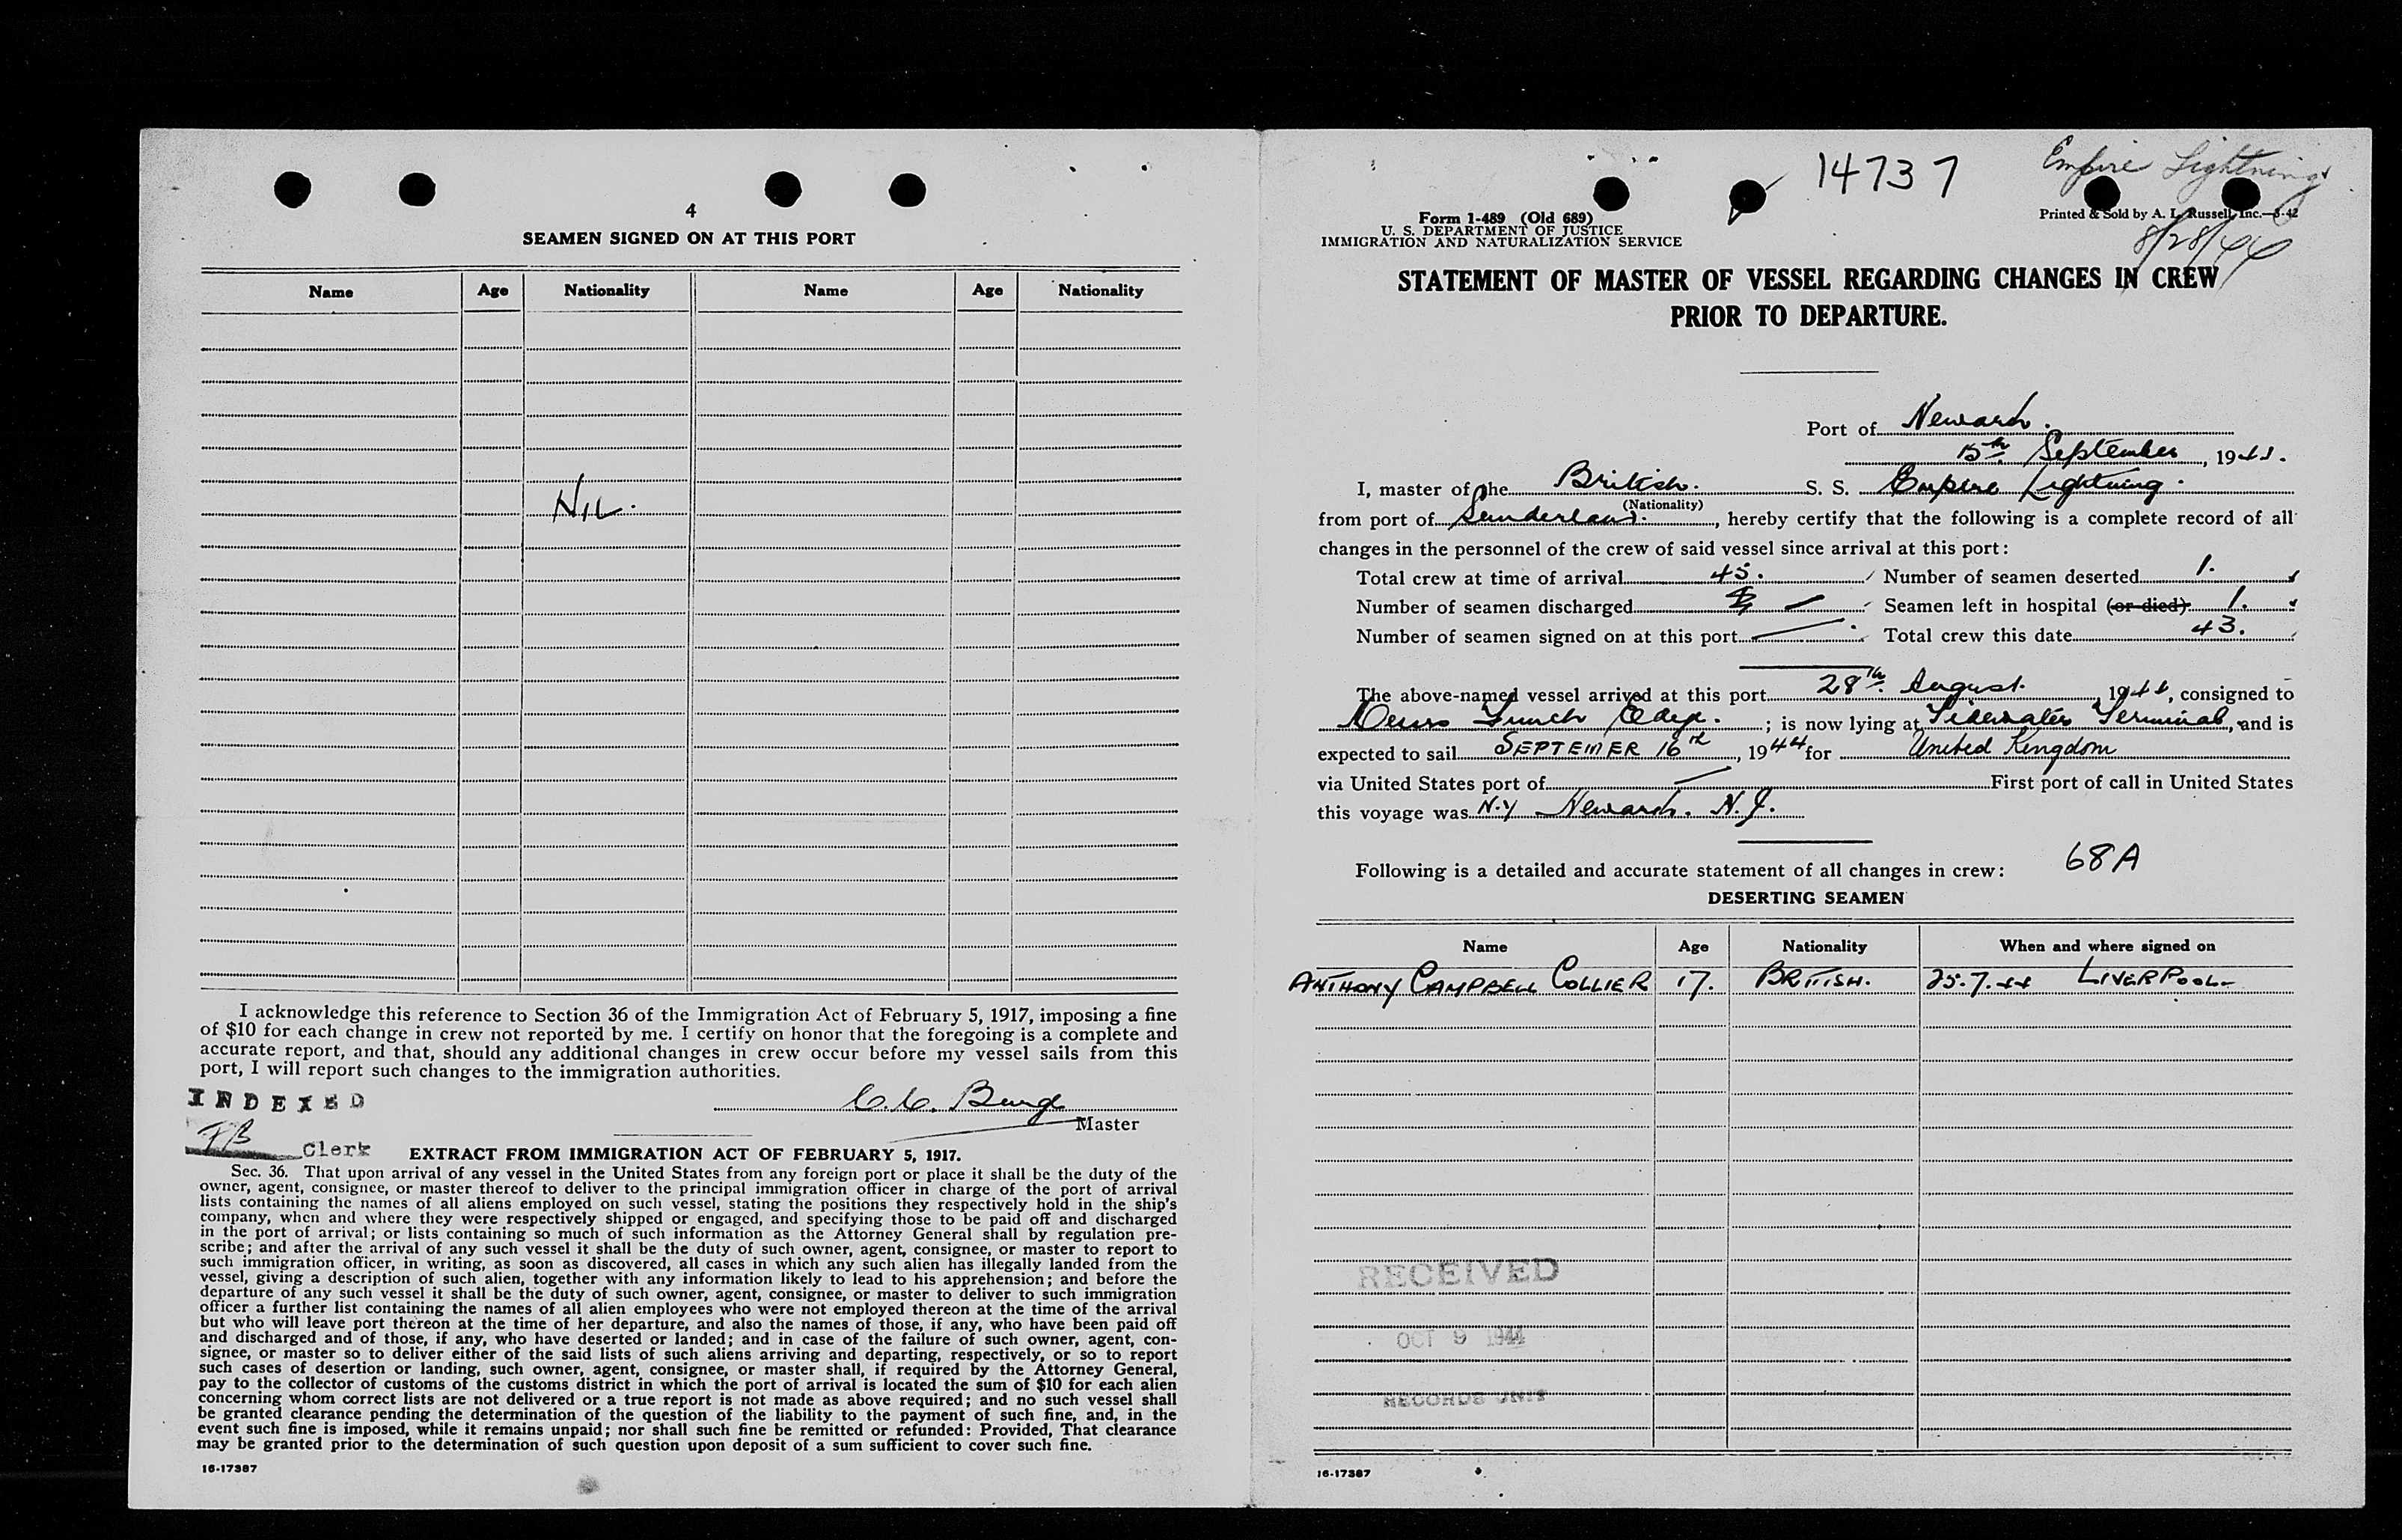 4
SEAMEN SIGNED ON AT THIS PORT
Name Age Nationality Name Age Nationality
NIL.
I acknowledge this reference to Section 36 of the Immigration Act of February 5, 1917, imposing a fine
of $10 for each change in crew not reported by me. I certify on honor that the foregoing is a complete and
accurate report, and that, should any additional changes in crew occur before my vessel sails from this
port, I will report such changes to the immigration authorities.
INDEXED
Master
Clerk
EXTRACT FROM IMMIGRATION ACT OF FEBRUARY 5, 1917.
Sec. 36. That upon arrival of any vessel in the United States from any foreign port or place it shall be the duty of the
owner, agent, consignee, or master thereof to deliver to the principal immigration officer in charge of the port of arrival
lists containing the names of all aliens employed on such vessel, stating the positions they respectively hold in the ship's
company, when and where they were respectively shipped or engaged, and specifying those to be paid off and discharged
in the port of arrival; or lists containing so much of such information as the Attorney General shall by regulation pre-
scribe; and after the arrival of any such vessel it shall be the duty of such owner, agent, consignee, or master to report to
such immigration officer, in writing, as soon as discovered, all cases in which any such alien has illegally landed from the
vessel, giving a description of such alien, together with any information likely to lead to his apprehension; and before the
departure of any such vessel it shall be the duty of such owner, agent, consignee, or master to deliver to such immigration
officer a further list containing the names of all alien employees who were not employed thereon at the time of the arrival
but who will leave port thereon at the time of her departure, and also the names of those, if any, who have been paid off
and discharged and of those, if any, who have deserted or landed; and in case of the failure of such owner, agent, con-
signee, or master so to deliver either of the said lists of such aliens arriving and departing, respectively, or so to report
such cases of desertion or landing, such owner, agent, consignee, or master shall, if required by the Attorney General,
pay to the collector of customs of the customs district in which the port of arrival is located the sum of $10 for each alien
concerning whom correct lists are not delivered or a true report is not made as above required; and no such vessel shall
be granted clearance pending the determination of the question of the liability to the payment of such fine, and, in the
event such fine is imposed, while it remains unpaid; nor shall such fine be remitted or refunded: Provided, That clearance
may be granted prior to the determination of such question upon deposit of a sum sufficient to cover such fine.
16-17387
14737
Empire Lightning
Form 1-489 (Old 689)
U. S. DEPARTMENT OF JUSTICE
IMMIGRATION AND NATURALIZATION SERVICE
Printed & Sold by A. L. Russell, Inc.—3-42
8/28/44
STATEMENT OF MASTER OF VESSEL REGARDING CHANGES IN CREW
PRIOR TO DEPARTURE.
Port of Newark.
15th September, 1944.
I, master of the British. S. S. Empire Lightning.
(Nationality)
from port of Sunderland., hereby certify that the following is a complete record of all
changes in the personnel of the crew of said vessel since arrival at this port:
Total crew at time of arrival 45. Number of seamen deserted 1.
Number of seamen discharged — Seamen left in hospital (or died) 1.
Number of seamen signed on at this port — Total crew this date 43.
The above-named vessel arrived at this port 28th. August. 1944, consigned to
Funch Edye.; is now lying at Tidewater Terminal, and is
expected to sail SEPTEMER 16th, 1944 for United Kingdom
via United States port of — First port of call in United States
this voyage was N.Y Newark. N.J.
Following is a detailed and accurate statement of all changes in crew: 68A
DESERTING SEAMEN
Name Age Nationality When and where signed on
ANTHONY CAMPBELL COLLIER 17. BRITISH. 25.7.44 LIVERPOOL
RECEIVED
OCT 9 1944
RECORDS UNIT
16-17387